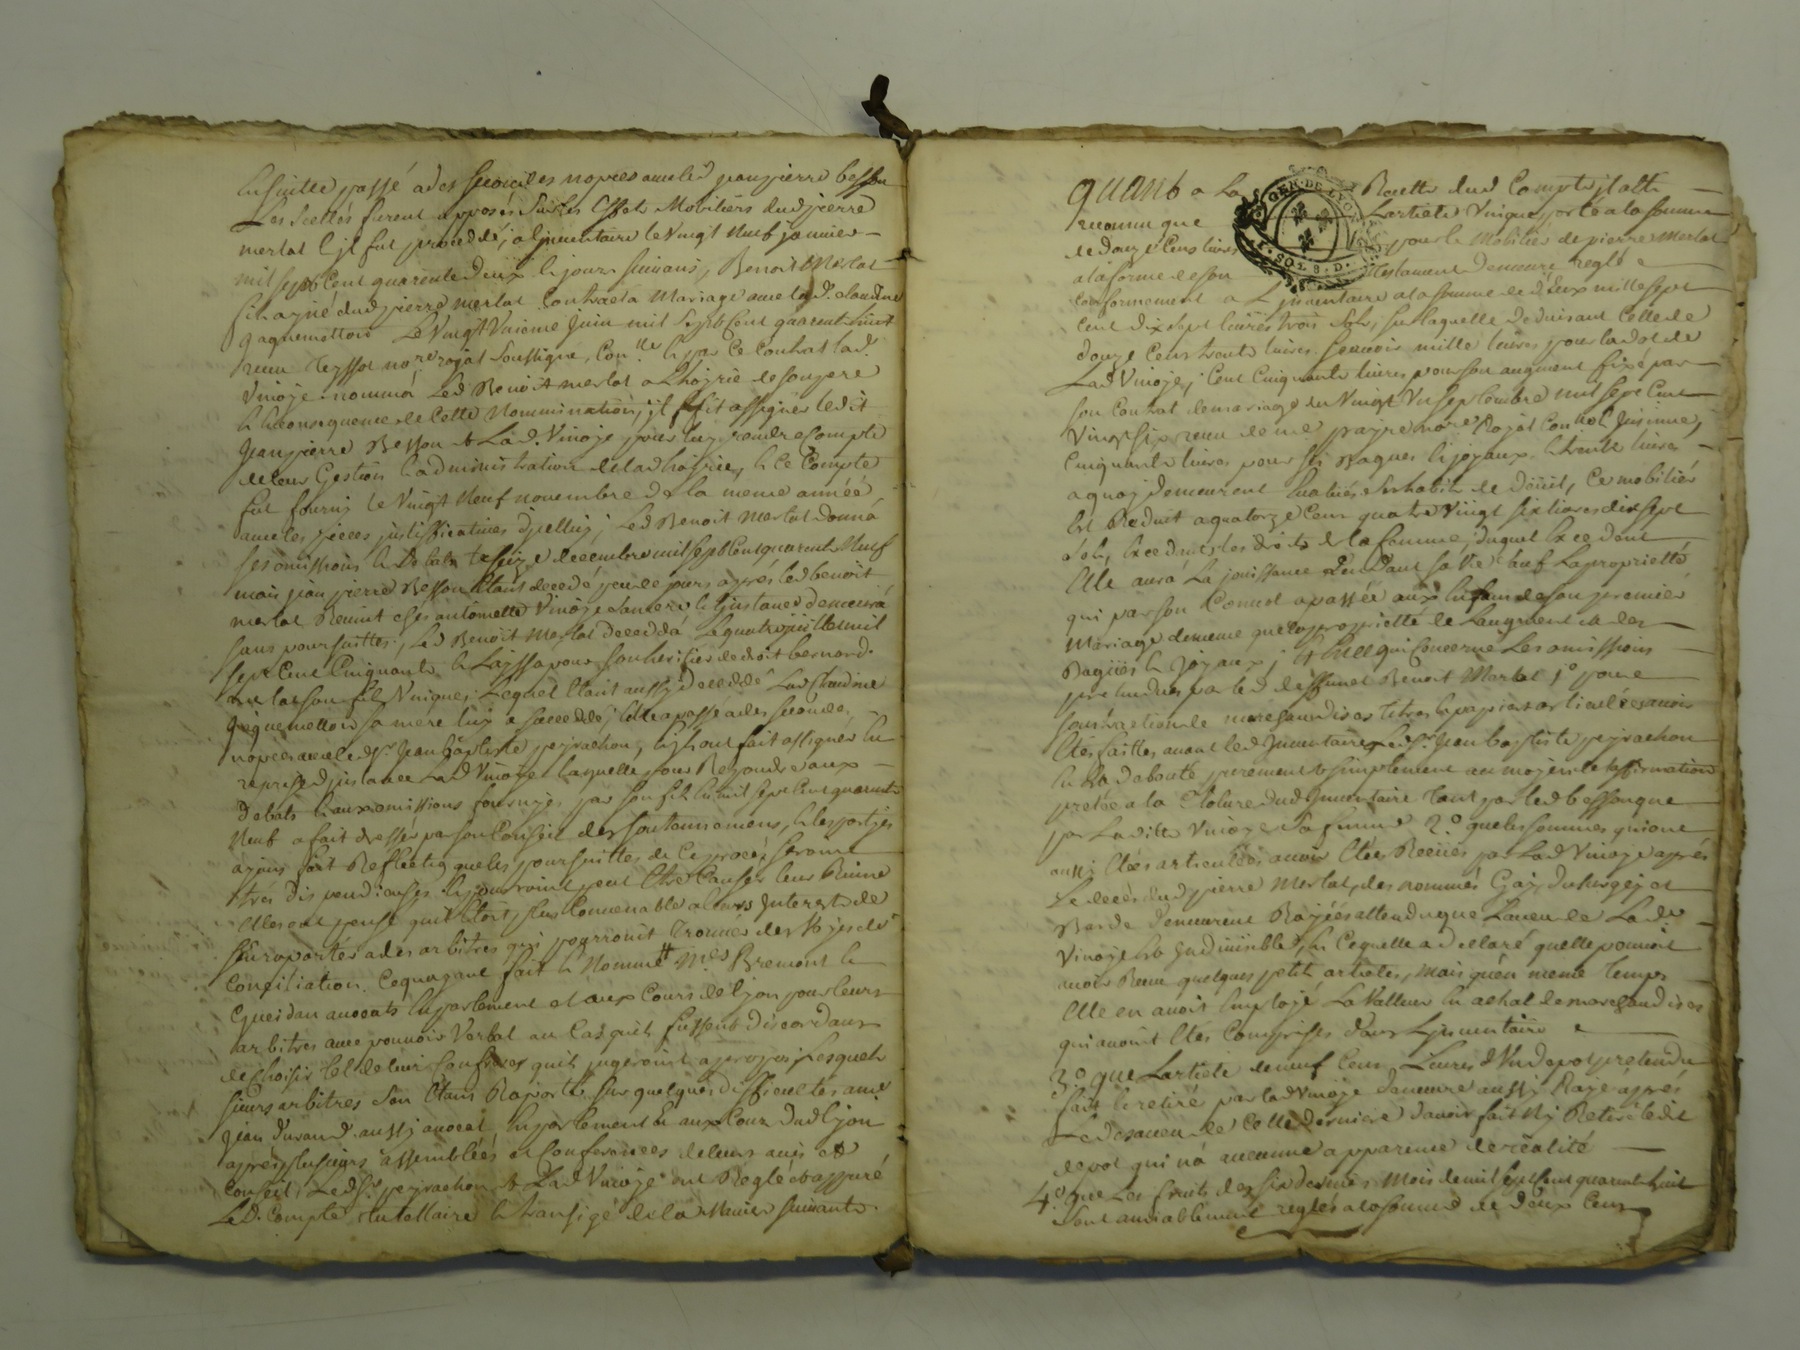 Ensuitte passé a des secondes nopces avec led jean pierre besson
Les scellés furent apposés sur les Effets Mobiliers dud pierre
merlat & jl fut procedé a l'jnventaire le vingt neuf janvier
mil sept Cent quarente deux & jours suivans, Benoit Merlat
fils ayné dud pierre merlat Contracta Mariage avec lad. claudine
gaguemettoin Le vingt Unieme juin mil sept Cent quarente huit
receu Teyssot no.re royal soussigné, Con.llé & par Ce Contrat lad.
Vinoje nomma Led Benoit merlat a L'hoirie de son pere
& En consequence de Cette Nommination, jl fit assigner ledit
Jean pierre Besson & Lad. Vinoje pour luy rendre Compte
de leur Gestion & administration de lad hoirie, & Ce Compte
fut fourny le Vingt Neuf novembre de la même année
avec les pieces justifficatives d'jcelluy, Led Benoit Merlat donna
ses omissions & Debats le seize decembre mil sept Cent quarente Neuf
mais jean pierre Besson Etant decedé peu de jours aprés led benoit
merlat
sans poursuittes, Led Benoit Merlat decedda Le quatre
sept Cent Cinquante & Laissa pour son heritier de droit bernard
merlat son fils Unique, Lequel Etant aussy deceddé Lad Claudine
gaguemettoin sa mere luy a succeddé, Elle a passé a des secondes
nopces avec le d. Sr. Jean Baptiste peyrachon, ils ont fait assigner En
reprise d'jnstance Lad Vinoje laquelle pour Repondre aux
debats & aux omissions fournyes par son fils En mil sept Cent quarente
Neuf a fait dresser par son Conseil des soutennemens, & les partjes
ayans fait Reflection que les poursuittes de Ce procés seroint
trés dispendieuses & pourroint peut Etre Causer leur Ruine
Elles ont pensé qu'il Etoit plus Convenable a leurs Interets de
s'En raporter a des arbitres qui pourroint trouver des Voyes de
Conciliation. Ce qu'ayant fait & Nommé M.es Bremont &
Gueidan avocats En parlement et aux Cours de lyon pour leurs
arbitres avec pouvoir Verbal au Cas qu'ils fussent discordans
de choisir tel de leur Confreres qu'ils jugeroint a propos, Lesquels
sieurs arbitres s'en Etans Raportés sur quelques difficultés a me.
Jean durand aussy avocat En parlement & aux Cour dud lyon
aprés plusieurs assemblées et Conferences de leurs avis et
Conseil, Le d. Sr. peyrachon & Lad Vinoje ont Reglé et appuré
Le d. Compte tutellaire & transigé de la Maniere suivante.
Quant a La Recette dud Compte jl a Eté
reconnu que L'article Unique porté a la somme
de douze Cens livres pour le Mobilier de pierre Merlat
a la forme de son testament demeure reglé
Conformement a L'jnventaire a la somme de deux mille sept
Cent dix sept livres trois sols, sur laquelle deduisant Celle de
douze Cens trente livres. sçavoir mille livres pour la dot de
Lad Vinoje, Cent Cinquante livres pour son augment fixé par
son Contrat de mariage du Vingt Un septembre mil sept Cent
Vingt six receu de me payre no.re Royal Con.llé Jnsinué,
Cinquante livres pour ses Bagues & joyaux & trente livres
a quoy demeurent Evalués ses habits de deüil, Ce mobilier
Est Reduit a quatorze Cens quatre Vingt six livres dix sept
sols, Excedent les droits de la femme, duquel Excedent
Elle aura La jouissance pendant sa vie sauf La proprietté
qui par son Convol a passée aux Enfans de son premier
Mariage de meme que la proprietté de L'augment et des
Bagües & Joyaux; Et En Ce qui Concerne Les omissions
pretendües par led deffunt Benoit Merlat, 1.o pour
soustraction de marchandises Titres & papiers articulées avoir
Etés faittes avant led Jnventaire, Led Sr. Jean baptiste peyrachon
En Est debouté purement & simplement au moyen de l'affirmation
pretée a la Cloture dud Jnventaire tant par led besson que
par Laditte Vinoje sa femme 2.o que les sommes qui ont
aussy Etés articulées avoir Etées Reçües par Lad Vinoje aprés
Le decés dud pierre Merlat, des nommés Gay, duverger et
Barde demeurent Rayées attendu que L'aveu de La de.
Vinoje Est Jndivisible, & Laquelle a declaré qu'elle pouvoit
avoir Receu quelques petits articles, mais qu'en meme temps
Elle en avoit Employé La Valleur En achat de marchandises
qui avoint Etés Comprises dans L'jnventaire
3.o Que L'article de neuf Cens Livres d'Un depot pretendu
fait & retiré par lad Vinoje demeure aussy Rayé aprés
Le desaveu de Cette derniere d'avoir fait Ny Retiré ledit
depot qui n'a aucune apparence de realité
4.o Que Les fruits des six derniers Mois de mil sept Cent quarente huit
sont amiablement reglés a la somme de deux Cens
GEN. DE LYON
SOLS 8. D.